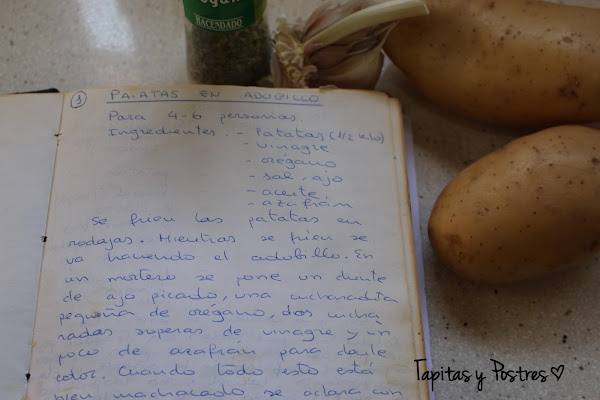 HACENDADO
① PATATAS EN ADOBILLO
Para 4-6 personas.
Ingredientes: - Patatas (1 1/2 kilo)
- vinagre
- orégano
- sal, ajo
- aceite
- azafrán
Se frien las patatas en
rodajas. Mientras se frien se
va haciendo el adobillo. En
un mortero se pone un diente
de ajo picado, una cucharadita
pequeña de orégano, dos cucha
radas soperas de vinagre y un
poco de azafrán para darle
color. Cuando todo esto está
bien machacado se aclara con
Tapitas y Postres♡